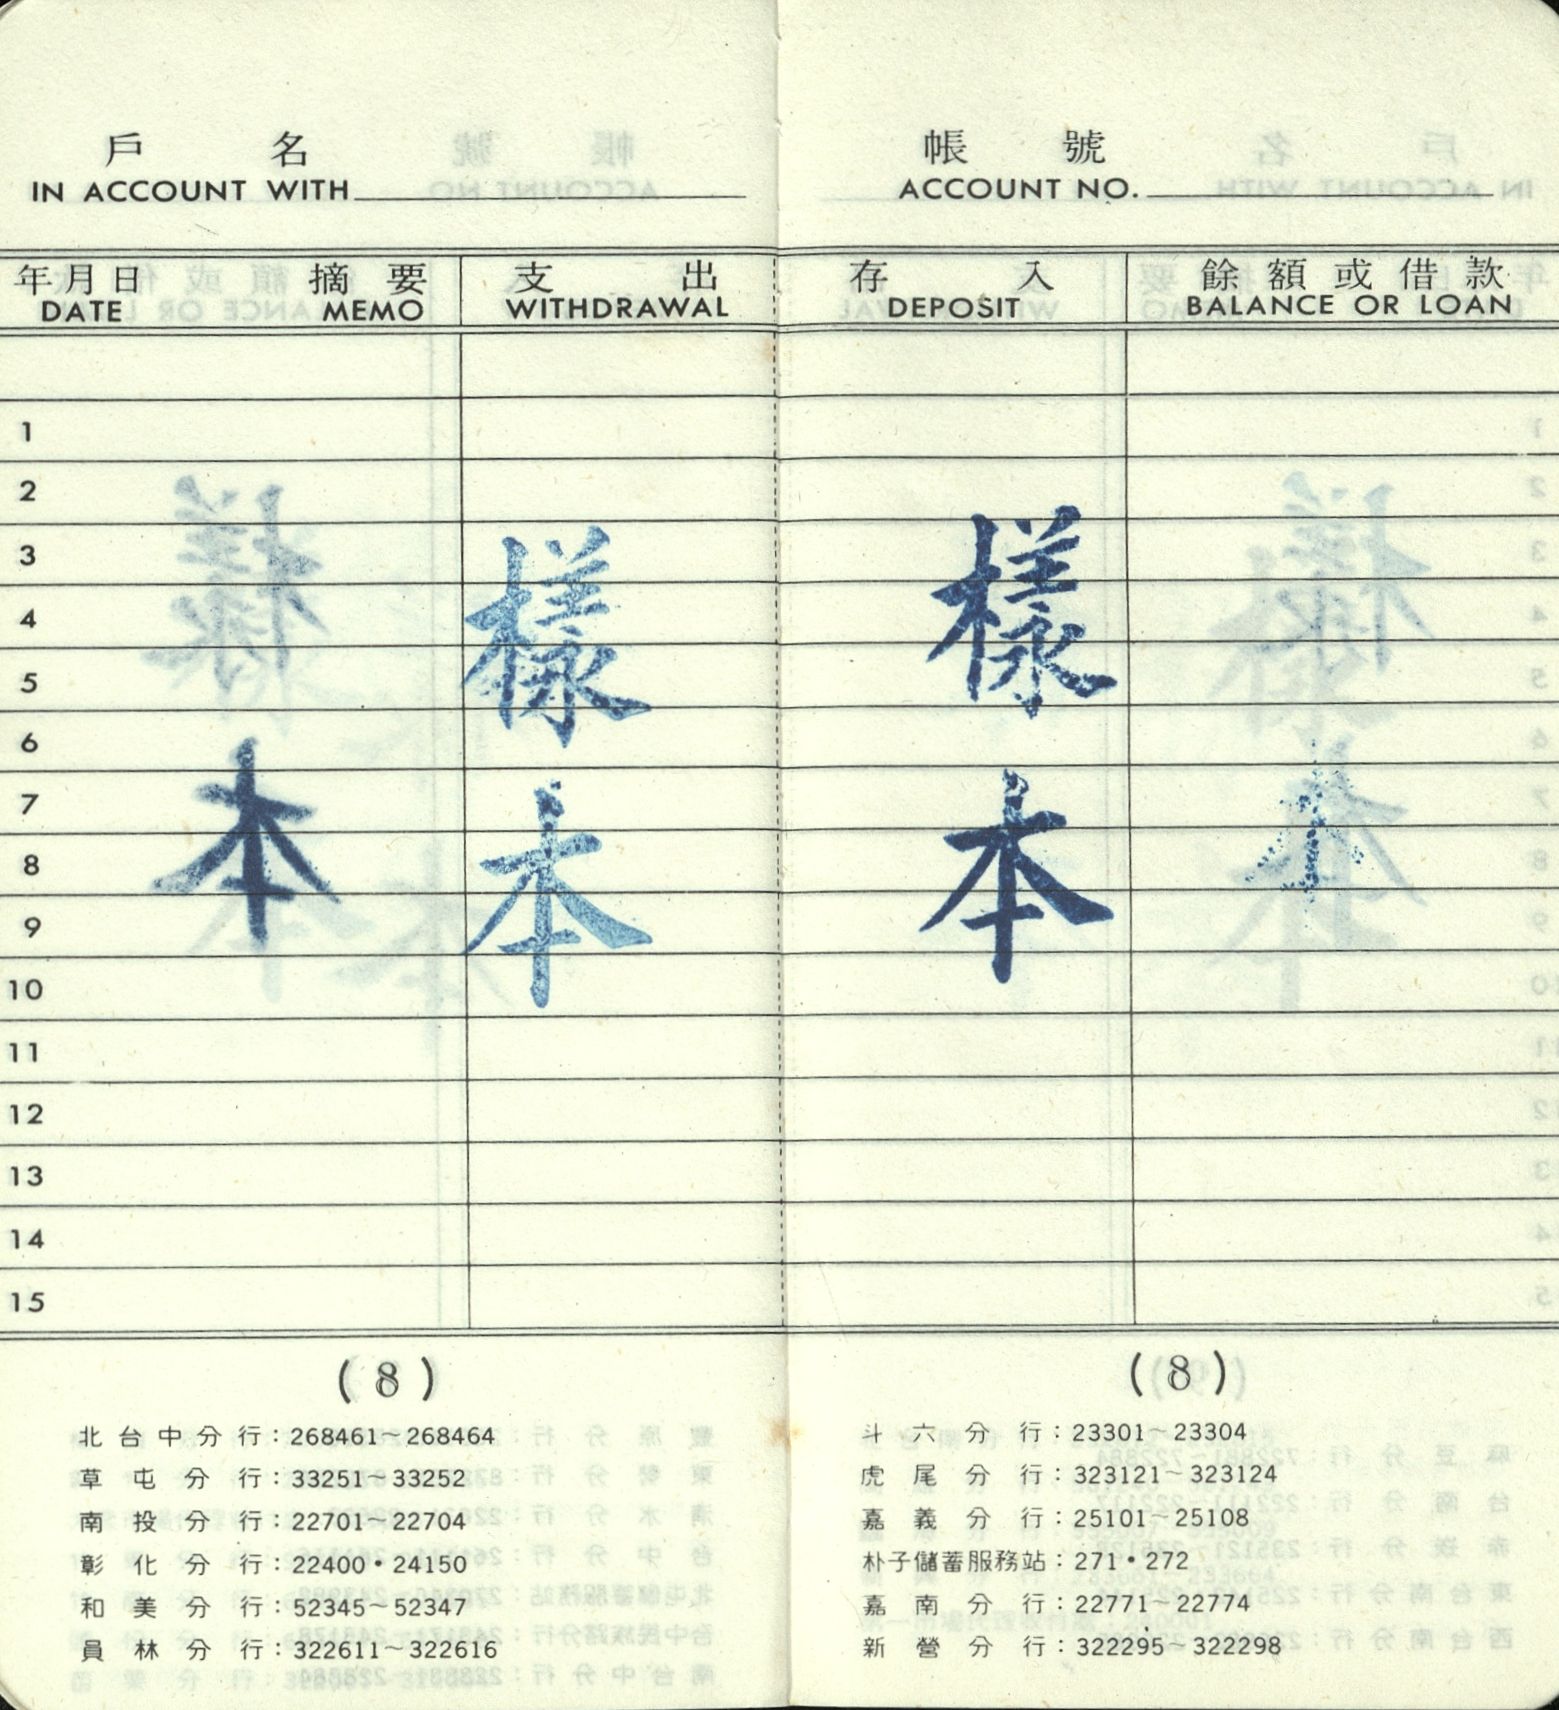 戶名 帳號
IN ACCOUNT WITH ACCOUNT NO.
年月日 摘要 支出 存入 餘額或借款
DATE MEMO WITHDRAWAL DEPOSIT BALANCE OR LOAN
1
2
3
4
5
6
7
8
9
10
11
12
13
14
15
樣本
樣本
本
(8)
北台中分行:268461~268464
草屯分行:33251~33252
南投分行:22701~22704
彰化分行:22400•24150
和美分行:52345~52347
員林分行:322611~322616
(8)
斗六分行:23301~23304
虎尾分行:323121~323124
嘉義分行:25101~25108
朴子儲蓄服務站:271•272
嘉南分行:22771~22774
新營分行:322295~322298